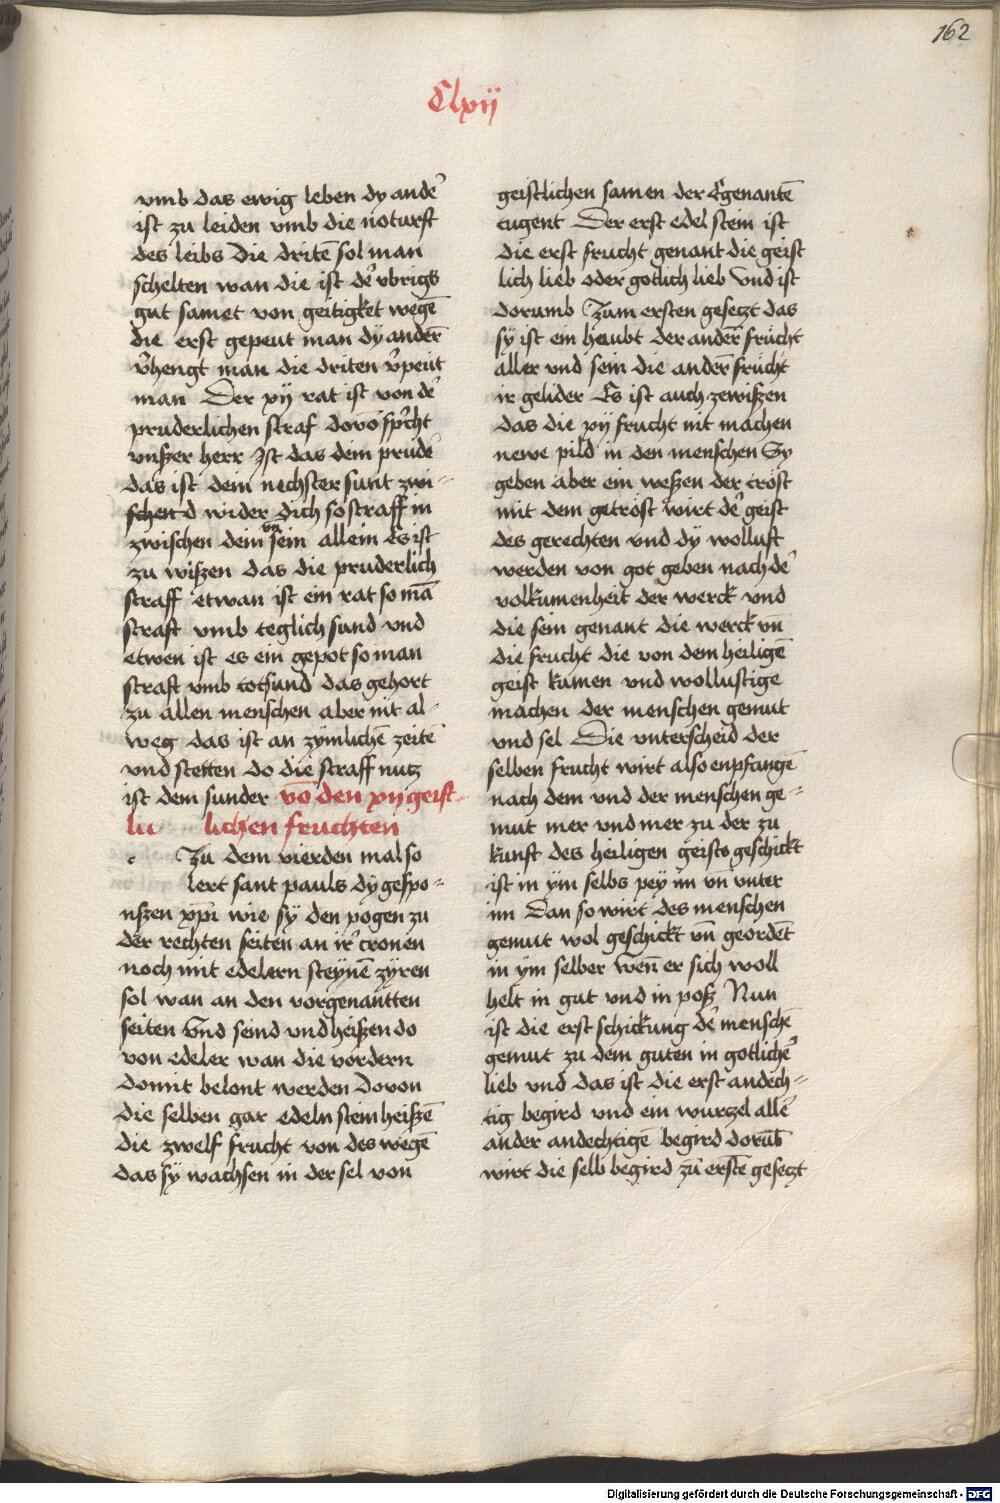 162
Clxij
vmb das ewig leben dy ander̄
ist zu leiden vmb die noturft
des leibs Die dritē sol man
schelten wan die ist der̄ vbrigs
gut samet von geitigket wegē
die erst gepeut man dÿ anderñ
v̄hengt man die driten v̄peüt
man Der xij rat ist von der̄
pruderlichen straf dovō spricht
vnßer herr Ist das dein prude
das ist dein nechster sunt zwi-
schen d wider dich so straff in
zwischen dein vn sein allein Es ist
zu wißen das die pruderlich
straff etwan ist ein rat so mā
straft vmb teglich sund vnd
etwen ist es ein gepot so man
straft vmb totsund das gehort
zu allen menschen aber nit al-
weg das ist an zymlichē zeitē
vnd steiten do die straff nutz
ist dem sunder vō den xij geist-
lichen fruchten
Zu dem vierden mal so
lert sant pauls dÿ gespo-
nßen xp̄i wie sÿ den pogen zu
der rechten seiten an ir̄ cronen
noch mit edelern steÿnē zÿren
sol wan an den vorgenantten
seiten Vnd seind vnd heißen do
von edeler wan die vordern
domit belont werden Dovon
die selben gar edeln stein heißē
die zwelf frucht von des wegē
das sÿ wachsen in der sel von
geistlichen samen der Egenantē
tugent Der erst edel stein ist
die erst frucht genant die geist
lich lieb oder gotlich lieb Vnd ist
dorumb Zum ersten gesetzt das
sy ist ein heubt der anderñ frücht
aller vnd sein die anderñ frücht
ir gelider Es ist auch zewißen
das die xij frucht nit machen
newe pild in den menschen Sy
geben aber ein weßen der tröst
mit dem getröst wirt der̄ geist
des gerechten vnd dÿ wollust
werden von got geben nach der̄
volkumenheit der werck vnd
die sein genant die werck vn̄
die frucht die von dem heiligē
geist kumen vnd wollustige
machen der menschen gemut
vnd sel Die vnterscheid der
selben frucht wirt also enpfangē
nach dem vnd der menschen ge-
mut mer vnd mer zu der zu
kunft des heiligen geists geschickt
ist in ÿm selbs peÿ im vn̄ vnter
im Dan so wirt des menschen
gemut wol geschickt vn̄ geordēt
in ÿm selber wen̄ er sich woll
helt in gut vnd in poß Nun
ist die erst schickung der̄ menschē
gemut zu dem guten in gotlicher̄
lieb vnd das ist die erst andech-
tig begird vnd ein wurzel aller̄
ander andechtigē begird dorūb
wirt die selb begird zū erstē gesetzt
Digitalisierung gefördert durch die Deutsche Forschungsgemeinschaft - DFG